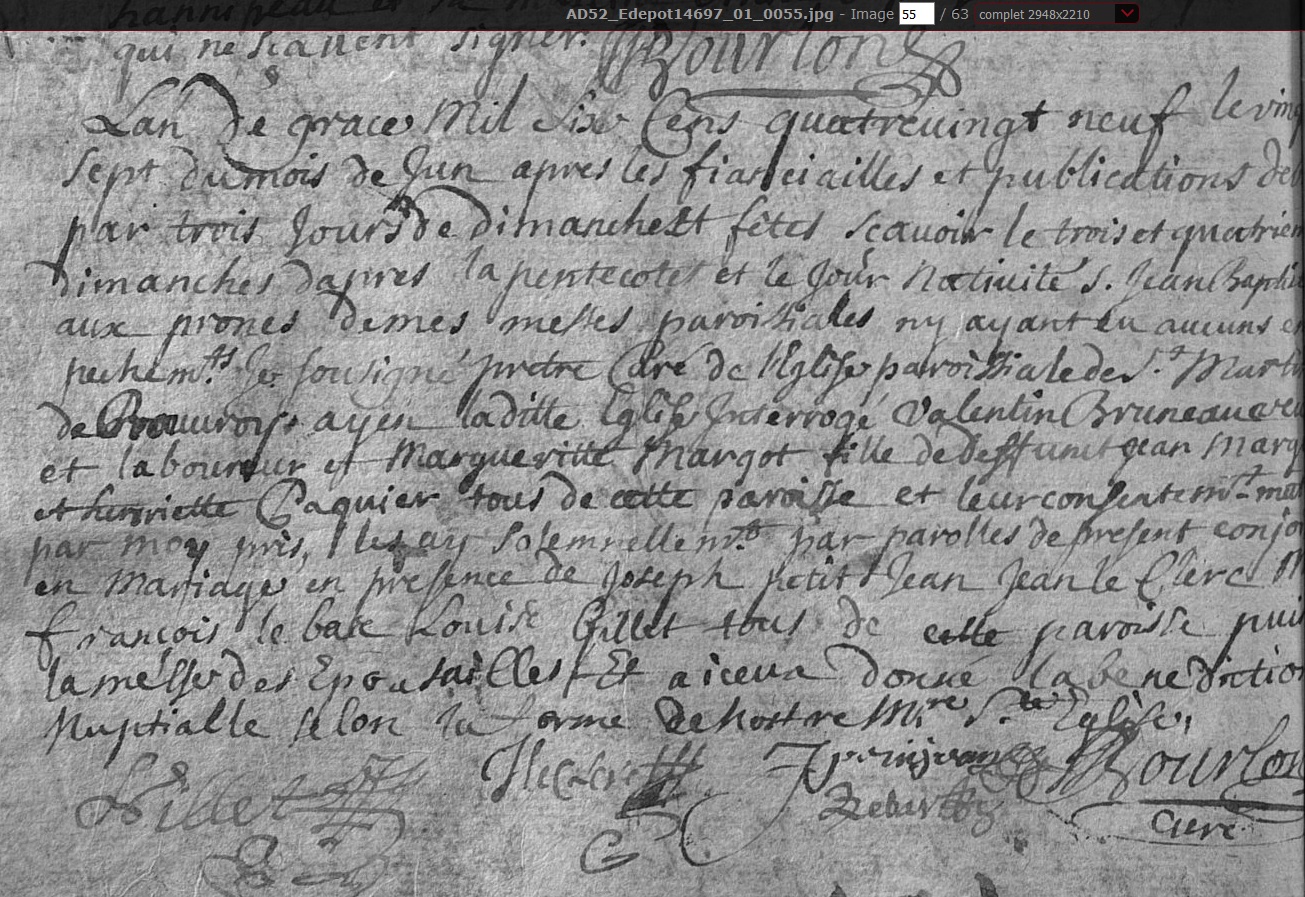 AD52_Edepot14697_01_0055.jpg - Image 55 / 63 complet 2948x2210
qui ne scauent signer. Bourlon
Lan de grace Mil Six Cens quatreuingt neuf le ving
sept du mois de Jun apres les fianciailles et publications de
par trois Jours de dimanche et fêtes scauoir le trois et quatriem
dimanches dapres la pentecotes et le Jour Natiuité s. Jean Baptis
aux prones de mes messes paroissiales ny ayant eu aucuns e
pechem.ts Je sousigné pretre Curé de l'Eglise paroissiale de s.t Marti
de ay en laditte Eglise Interrogé Valentin Bruneau
et laboureur et Margueritte Margot fille de deffunct Jean Marg
et henriette Paquier tous de cette paroisse et leur consentem.t mut
par moy pris, les ay solemnellem.t par parolles de present conjo
en Mariage en presence de Joseph petit Jean Jean le Clerc
francois le base Louise Gillet tous de cette paroisse pui
la messe des Epousailles Et a iceux donné la benediction
Nuptialle selon la forme de nostre M.re S.te Eglise,
Gillet Bourlon
Curé